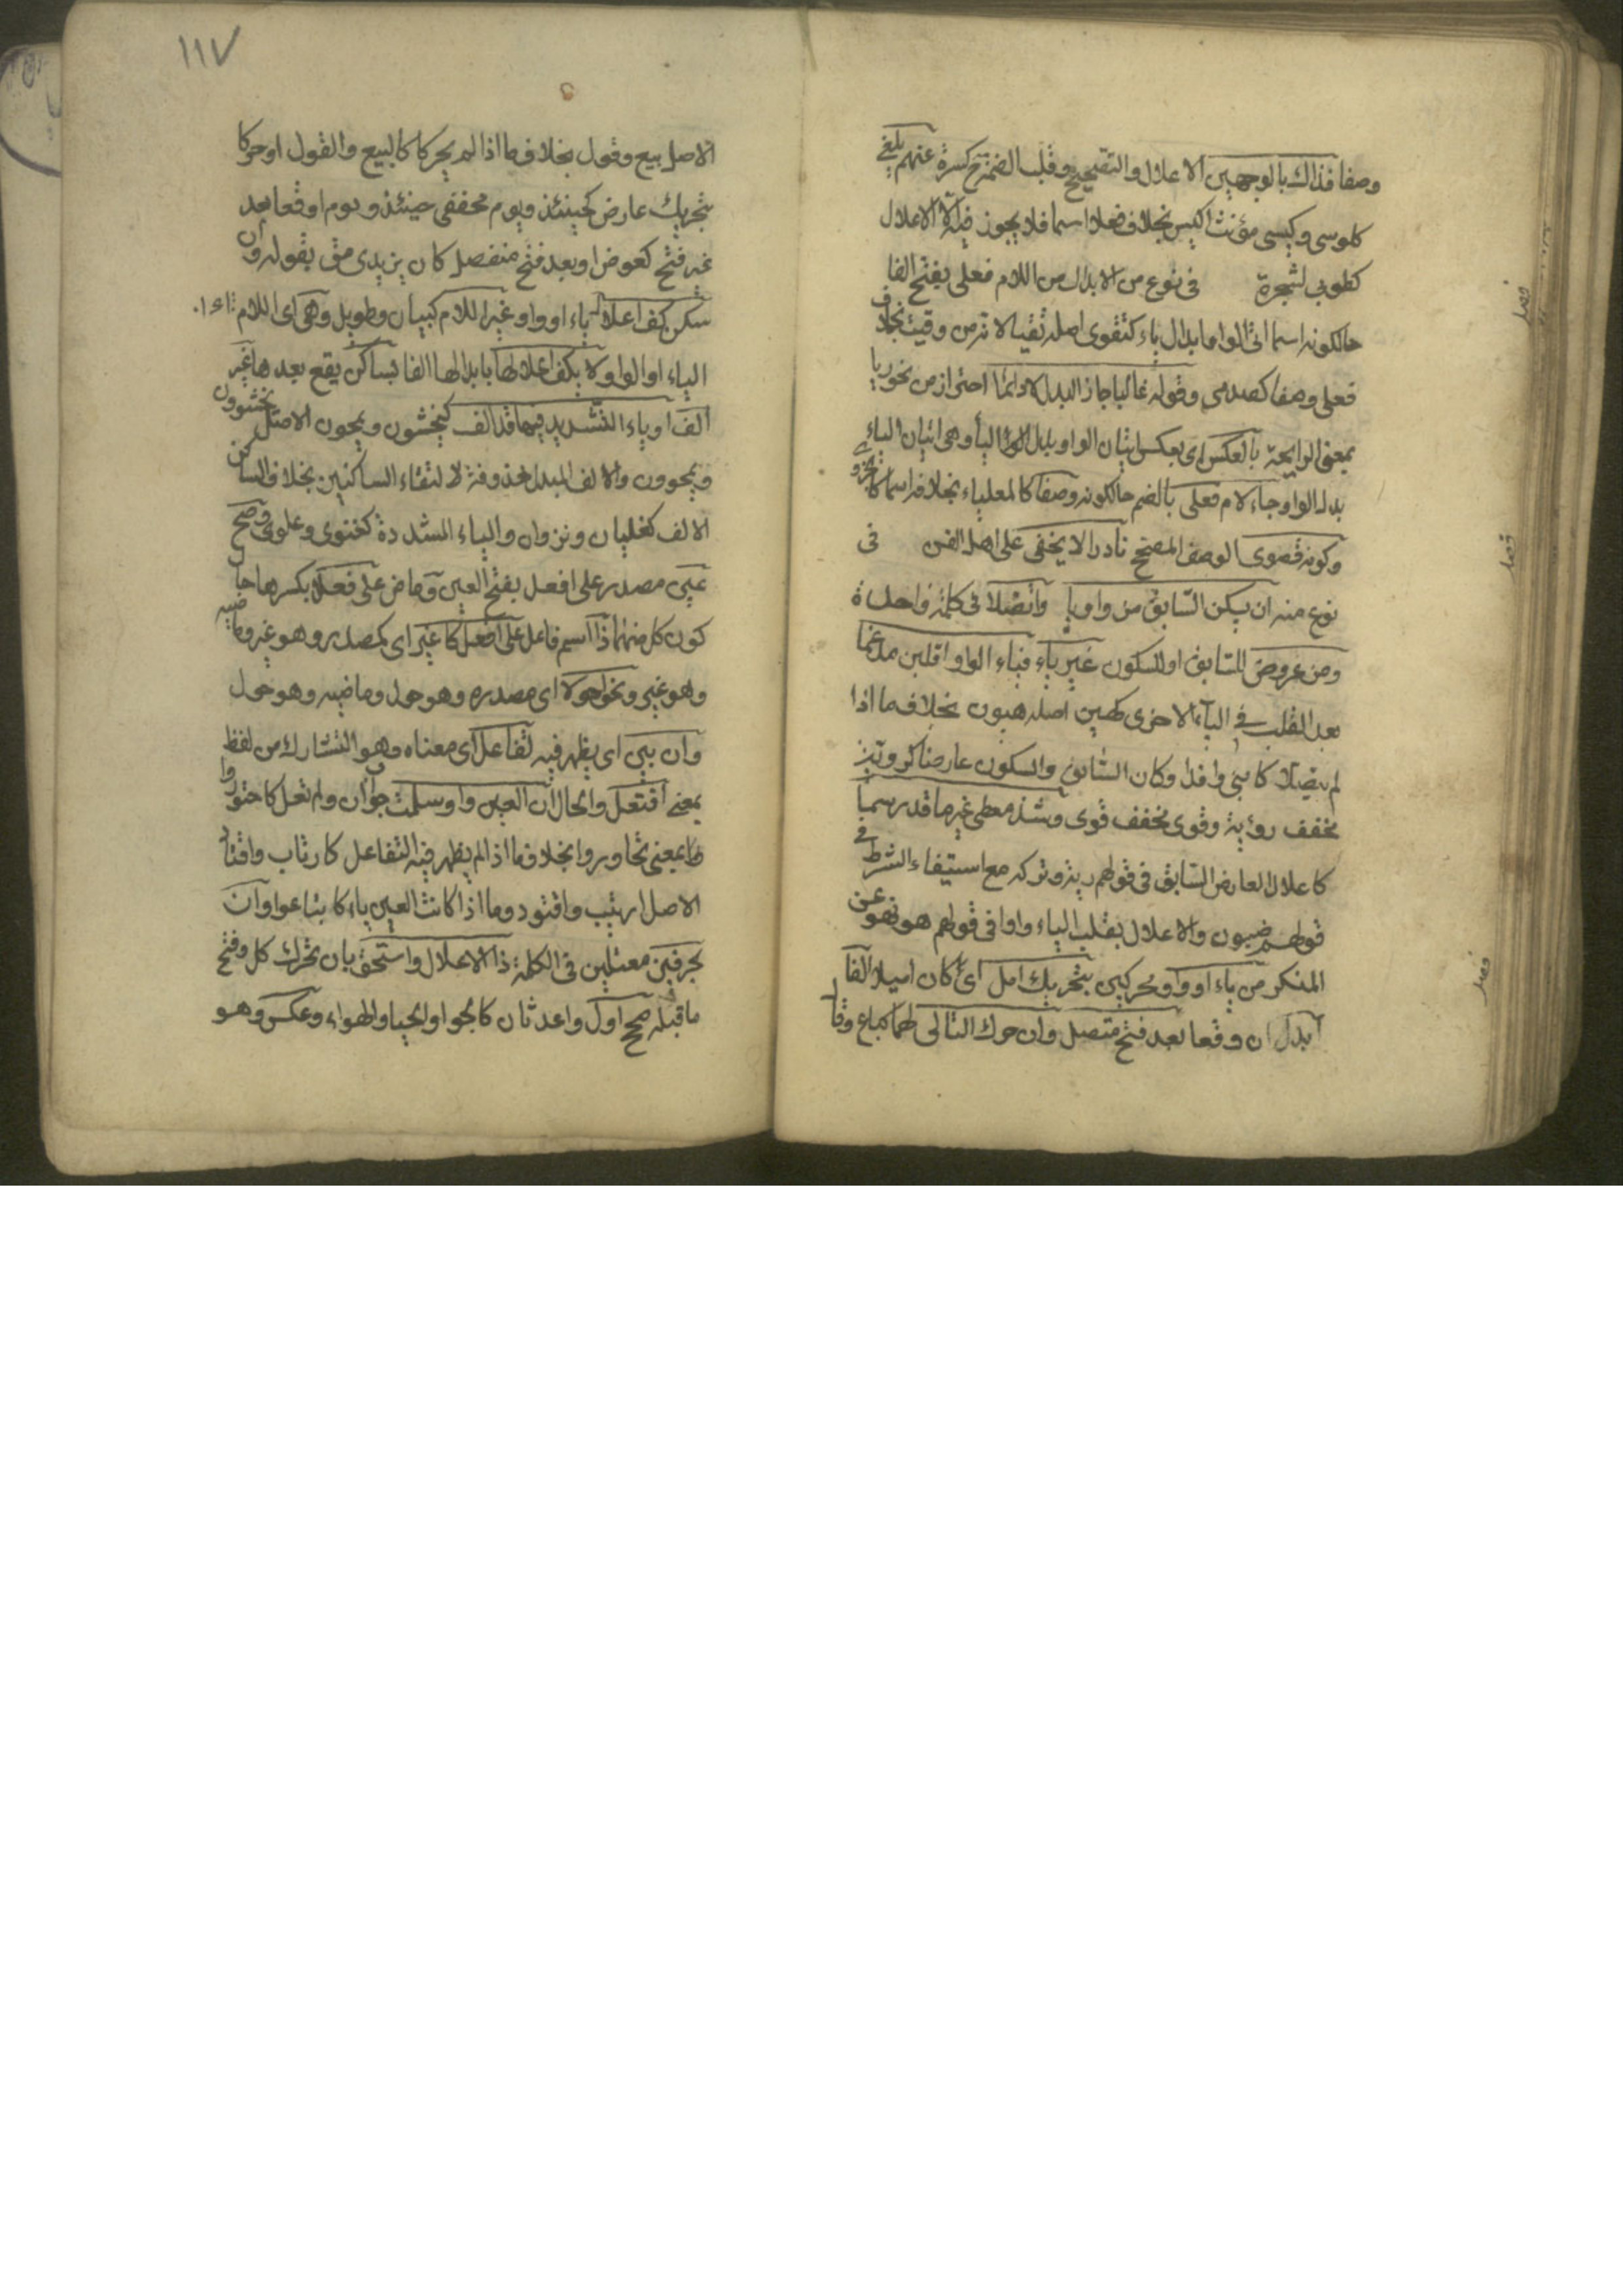 وصفا فذاك بالوجهين الاعلال والتصحيح وقلب الضمة كسرة عنهم يلفى
كلوسى وكيسى مؤنث اكيس بخلاف فعلا اسما فلا يجوز فيه الا الاعلال
كطوبى لشجرة في نوع من الابدال من اللام فعلى بفتح الفا
حالكونه اسما اتى الواو بدل ياء كتقوى اصله تقيا لانه من وقيت بخلاف
فعلى وصفا كصديى وقوله غالبا جا ذا البدل لا دائما احتراز من نحو ريا
بمعنى الرايحة بالعكس اى بعكس اتيان الواو بدل الياء وهى اتيان الياء
بدل الواو جاء لام فعلى بالضم حالكونه وصفا كالعلياء بخلافه اسما كحزوى
وكون قصوى الوصف المصحح نادرا لا يخفى على اهل الفن في
نوع منه ان يسكن السابق من واو ويا واتصلا في كلمة واحدة
ومن عروض للسابق او للسكون عريا فياء الواو اقلبن مدغما
بعد القلب في الياء الاخرى كهين اصله هيون بخلاف ما اذا
لم يتصلا كابنى وافد وكان السابق والسكون عارضا كروية
مخفف رؤية وقوى مخفف قوى وشذ معطى غير ما قد رسما
كاعلال العارض السابق في قولهم رية وتركه مع استيفاء الشرط في
قولهم ضيون والاعلال بقلب الياء واوا في قولهم هو نهو عن
المنكر من ياء او واو محركين بتحريك اصل اى كان اصيلا الفا
ابدل ان وقعا بعد فتح متصل وان حرك التالى لهما كباع وقال
فصل
فصل
فصل
١١٧
الاصل بيع وقول بخلاف ما اذا لم يحركا كالبيع والقول او حركا
بتحريك عارض كجيئذ ويوم مخففى حينئذ ويوم او وقعا بعد
غير فتح كعوض او بعد فتح منفصل كان يزيد ومق بقوله وان
سكن كف اعلال ياء او واو غير اللام كبيان وطويل وهى اى اللام
الياء او الواو لا يكف اعلالها بابدالها الفا بساكن يقع بعدها غير
الف او ياء التشديد فيها قد الف كيخشون ويمحون الاصل يخشيون
ويمحوون والالف المبدل محذوفة لالتقاء الساكنين بخلاف الساكن
الالف كغليان ونزوان والياء المشددة كغنوى وعلوى وصح
عين مصدر على افعل بفتح العين وماض على فعلا بكسرها حال
كون كل منهما ذا اسم فاعل على افعل كاغير اى كمصدره وهو غير وماضيه
وهو غير ونحو احولا اى مصدره وهو حول وماضيه وهو حول
وان يبن اى يظهر فيه تفاعل اى معناه وهو التشارك من لفظ
بمعنى افتعل والحال ان العين واو سلمت جواب ان ولم تعل كاجتوروا
بمعنى تجاوروا بخلاف ما اذا لم يظهر فيه التفاعل كارتاب واقتاد
الاصل ارتيب واقتود وما اذا كانت العين ياء كابتاعوا وان
بحرفين معتلين في الكلمة ذا الاعلال واستحق بان تحرك كل وفتح
ما قبله صحح اول واعد ثان كالحوا والحيا والهواء وعكس وهو